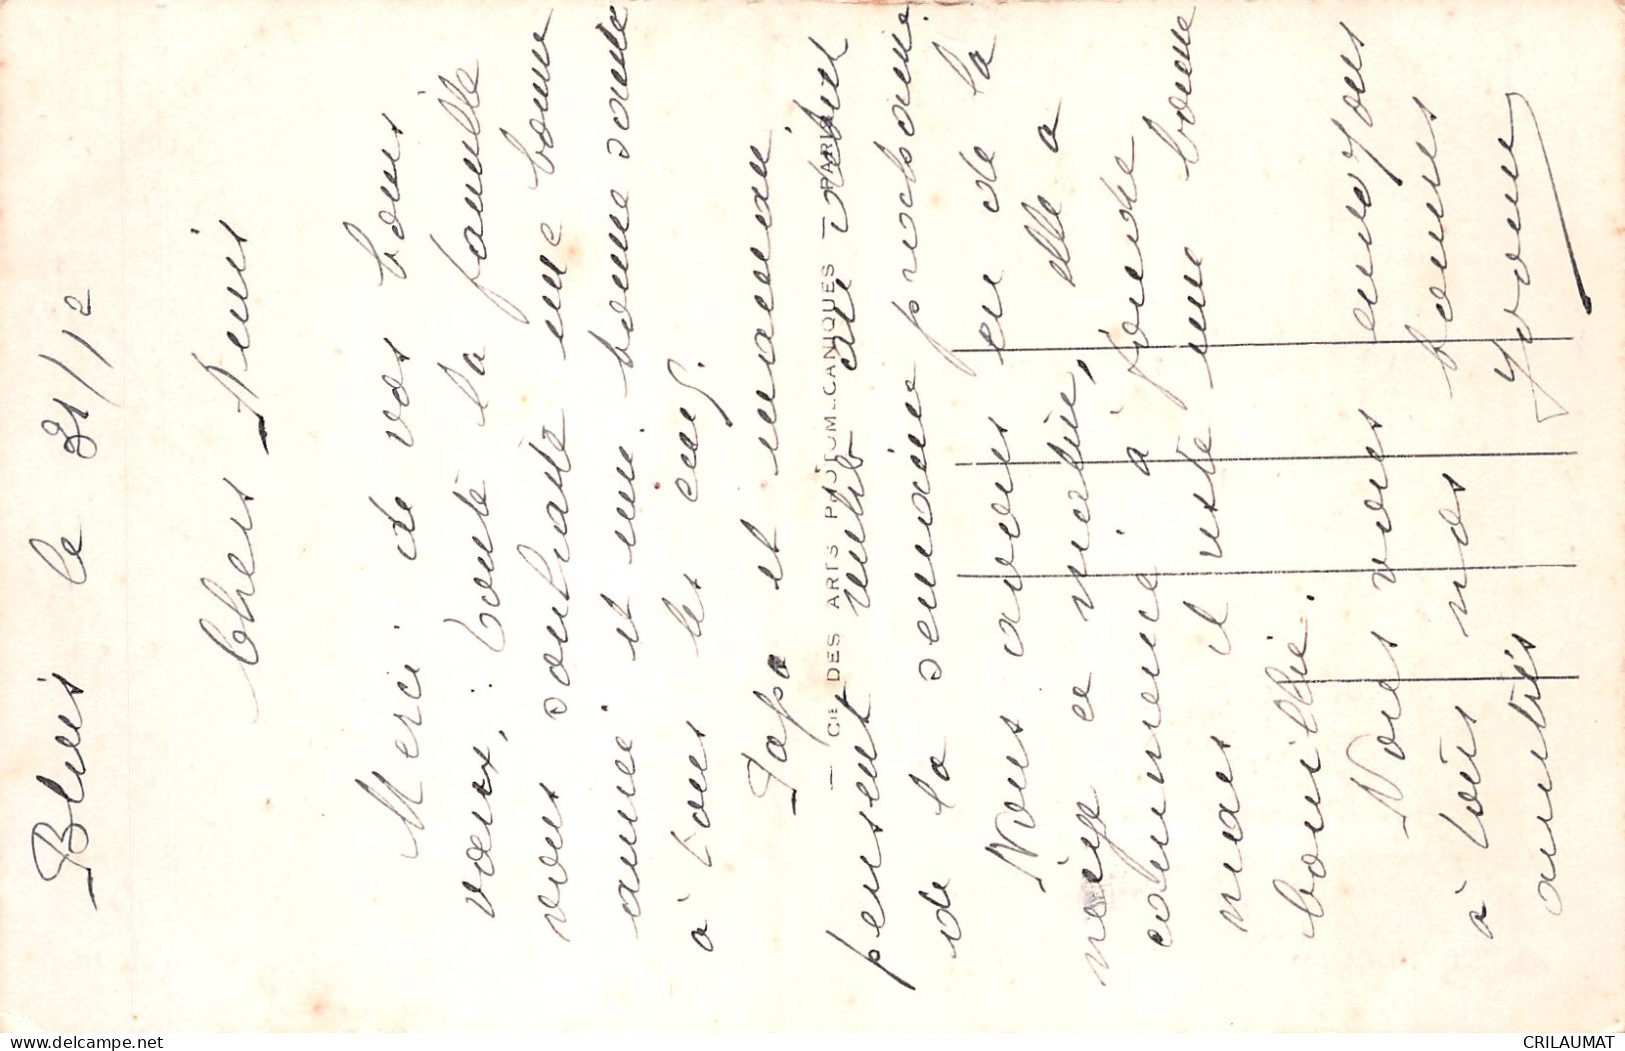 Blois le 31/12
Chers Amis
Merci de vos bons
vœux, toute la famille
vous souhaite une bonne
année et une bonne santé
à tous les cinq.
Papa et maman
pensent venir au début
de la semaine prochaine.
Nous avons eu de la
neige ce matin, elle a
commencé à fondre
mais il reste une bonne
bouillie.
Nous vous envoyons
à tous nos bonnes
amitiés Yvonne
CIE DES ARTS PHOTOMÉCANIQUES - PARIS
delcampe.net
CRILAUMAT